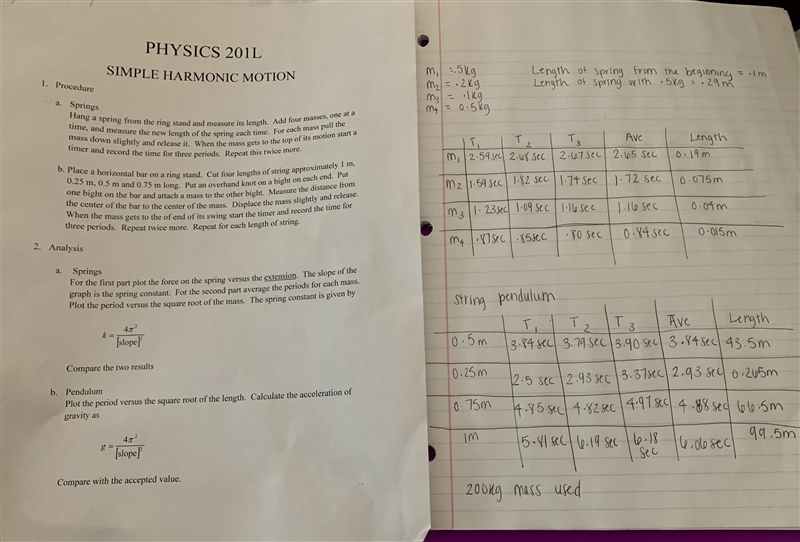 PHYSICS 201L
SIMPLE HARMONIC MOTION
1. Procedure
a. Springs
Hang a spring from the ring stand and measure its length. Add four masses, one at a
time, and measure the new length of the spring each time. For each mass pull the
mass down slightly and release it. When the mass gets to the top of its motion start a
timer and record the time for three periods. Repeat this twice more.
b. Place a horizontal bar on a ring stand. Cut four lengths of string approximately 1 m,
0.25 m, 0.5 m and 0.75 m long. Put an overhand knot on a bight on each end. Put
one bight on the bar and attach a mass to the other bight. Measure the distance from
the center of the bar to the center of the mass. Displace the mass slightly and release.
When the mass gets to the end of its swing start the timer and record the time for
three periods. Repeat twice more. Repeat for each length of string.
2. Analysis
a. Springs
For the first part plot the force on the spring versus the extension. The slope of the
graph is the spring constant. For the second part average the periods for each mass.
Plot the period versus the square root of the mass. The spring constant is given by
k = 4π² / [slope]²
Compare the two results
b. Pendulum
Plot the period versus the square root of the length. Calculate the acceleration of
gravity as
g = 4π² / [slope]²
Compare with the accepted value.
m₁ = .5kg Length of spring from the beginning = .1m
m₂ = .2kg Length of spring with .5kg = .29m
m₃ = .1kg
m₄ = 0.5kg
T₁ T₂ T₃ Ave Length
m₁ 2.59sec 2.68 sec 2.67sec 2.65 sec 0.19m
m₂ 1.59sec 1.82 sec 1.74sec 1.72 sec 0.075m
m₃ 1.23sec 1.09 sec 1.16 sec 1.16 sec 0.04m
m₄ .87sec .85sec .80 sec 0.84 sec 0.015m
string pendulum
T₁ T₂ T₃ Ave Length
0.5m 3.84sec 3.79 sec 3.90 sec 3.84sec 43.5m
0.25m 2.5 sec 2.93 sec 3.37sec 2.93 sec 0.265m
0.75m 4.85 sec 4.82 sec 4.97 sec 4.88 sec 66.5m
1m 5.81 sec 6.19 sec 6.18 sec 6.06 sec 99.5m
200kg mass used